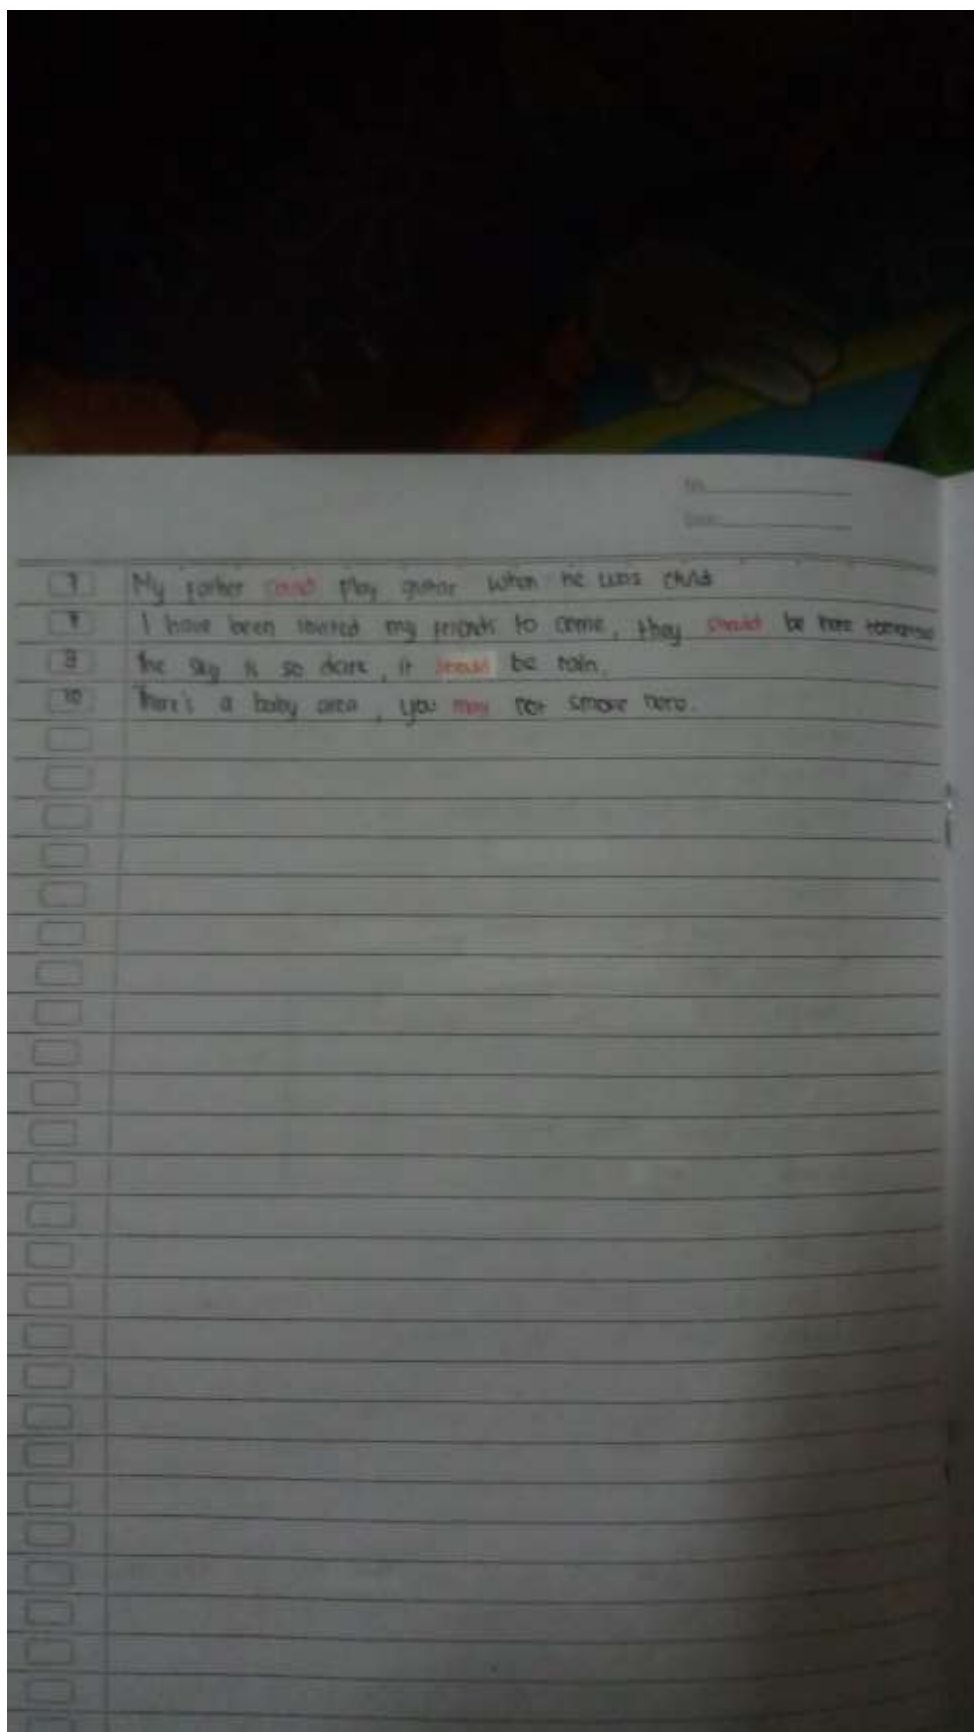 No
Date
7 My father could play guitar when he was child
8 I have been invited my friends to come, they should be here tomorrow
9 The sky is so dark, it should be rain.
10 There's a baby area, you may not smoke here.